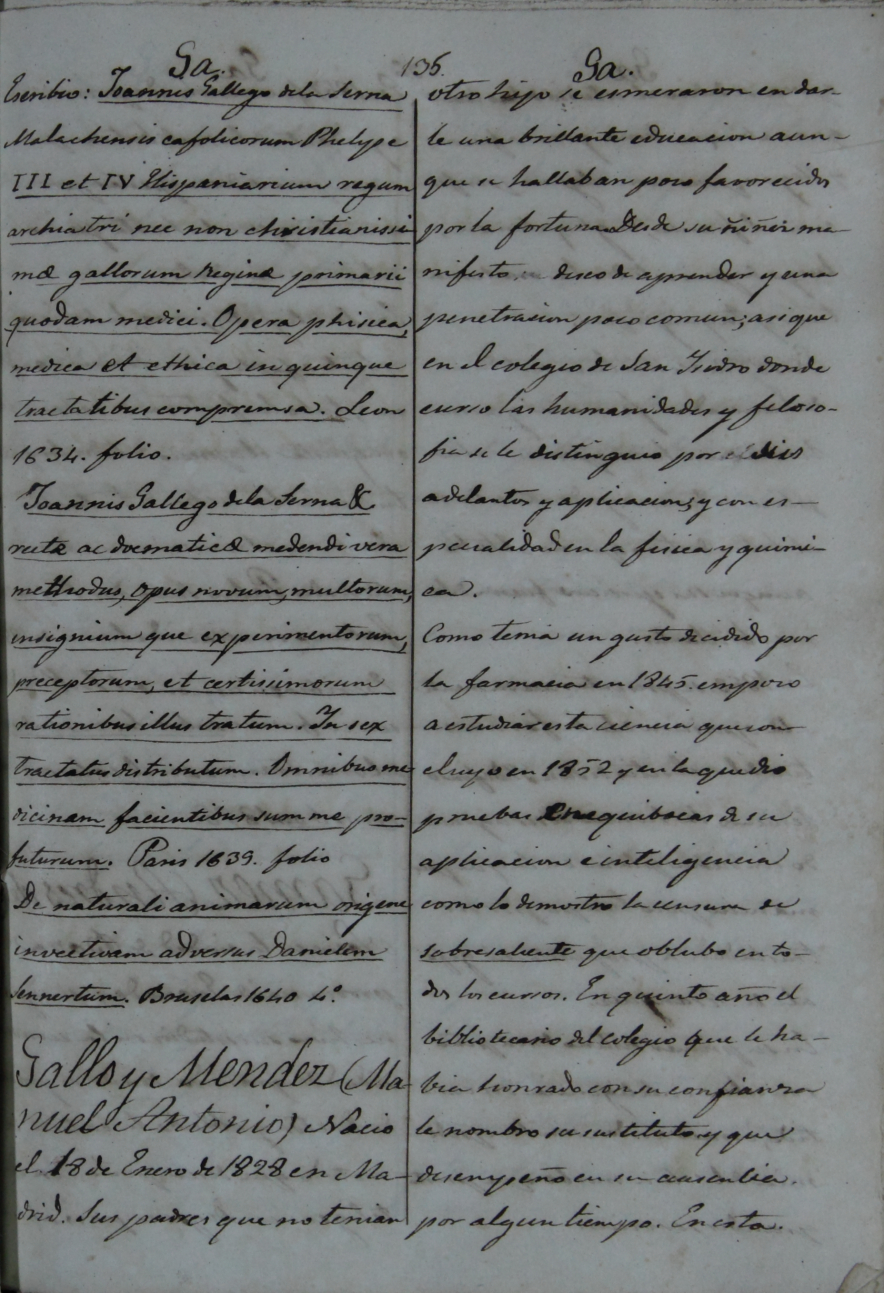 Ga.
136.
Ga.
Escribio: Joannis Gallego de la Serna
Malachensis cafolicorum Phelype
III et IV Hispaniarium regum
archiatri nec non christianissi
mæ gallorum Reginæ primarii
quodam medici. Opera phisica,
medica et ethica in quinque
tractatibus compremsa. Leon
1634. folio.
Joannis Gallego de la Serna &
rectæ ac docmaticæ medendi vera
methodus, opus novum, multorum,
insignium que experimentorum,
preceptorum, et certissimorum
rationibus illus tratum. In sex
tractatus distributum. Omnibus me
dicinam facientibus summe pro-
futurum. Paris 1639. folio
De naturali animarum origene
invectivam adversus Danielem
Sennertum. Bruselas 1640 4.º
Gallo y Mendez (Ma-
nuel Antonio) Nacio
el 18 de Enero de 1828 en Ma-
drid. Sus padres que no tenian
otro hijo se esmeraron en dar-
le una brillante educacion aun-
que se hallaban poco favorecidos
por la fortuna. Desde su niñez ma-
nifesto deseo de aprender y una
penetracion poco comun; asi que
en el colegio de San Isidro donde
curso las humanidades y filoso-
fia se le distinguio por sus
adelantos y aplicacion; y con es-
pecialidad en la fisica y quimi-
ca.
Como tenia un gusto decidido por
la farmacia en 1845. empezo
a estudiar esta ciencia que con-
cluyo en 1852 y en la que dio
pruebas inequibocas de su
aplicacion e inteligencia
como lo demostro la censura de
sobresaliente que obtubo en to-
dos los cursos. En quinto año el
bibliotecario del colegio que le ha-
bia honrado con su confianza
le nombro su sustituto y que
desempeño en su ausencia.
por algun tiempo. En esta.